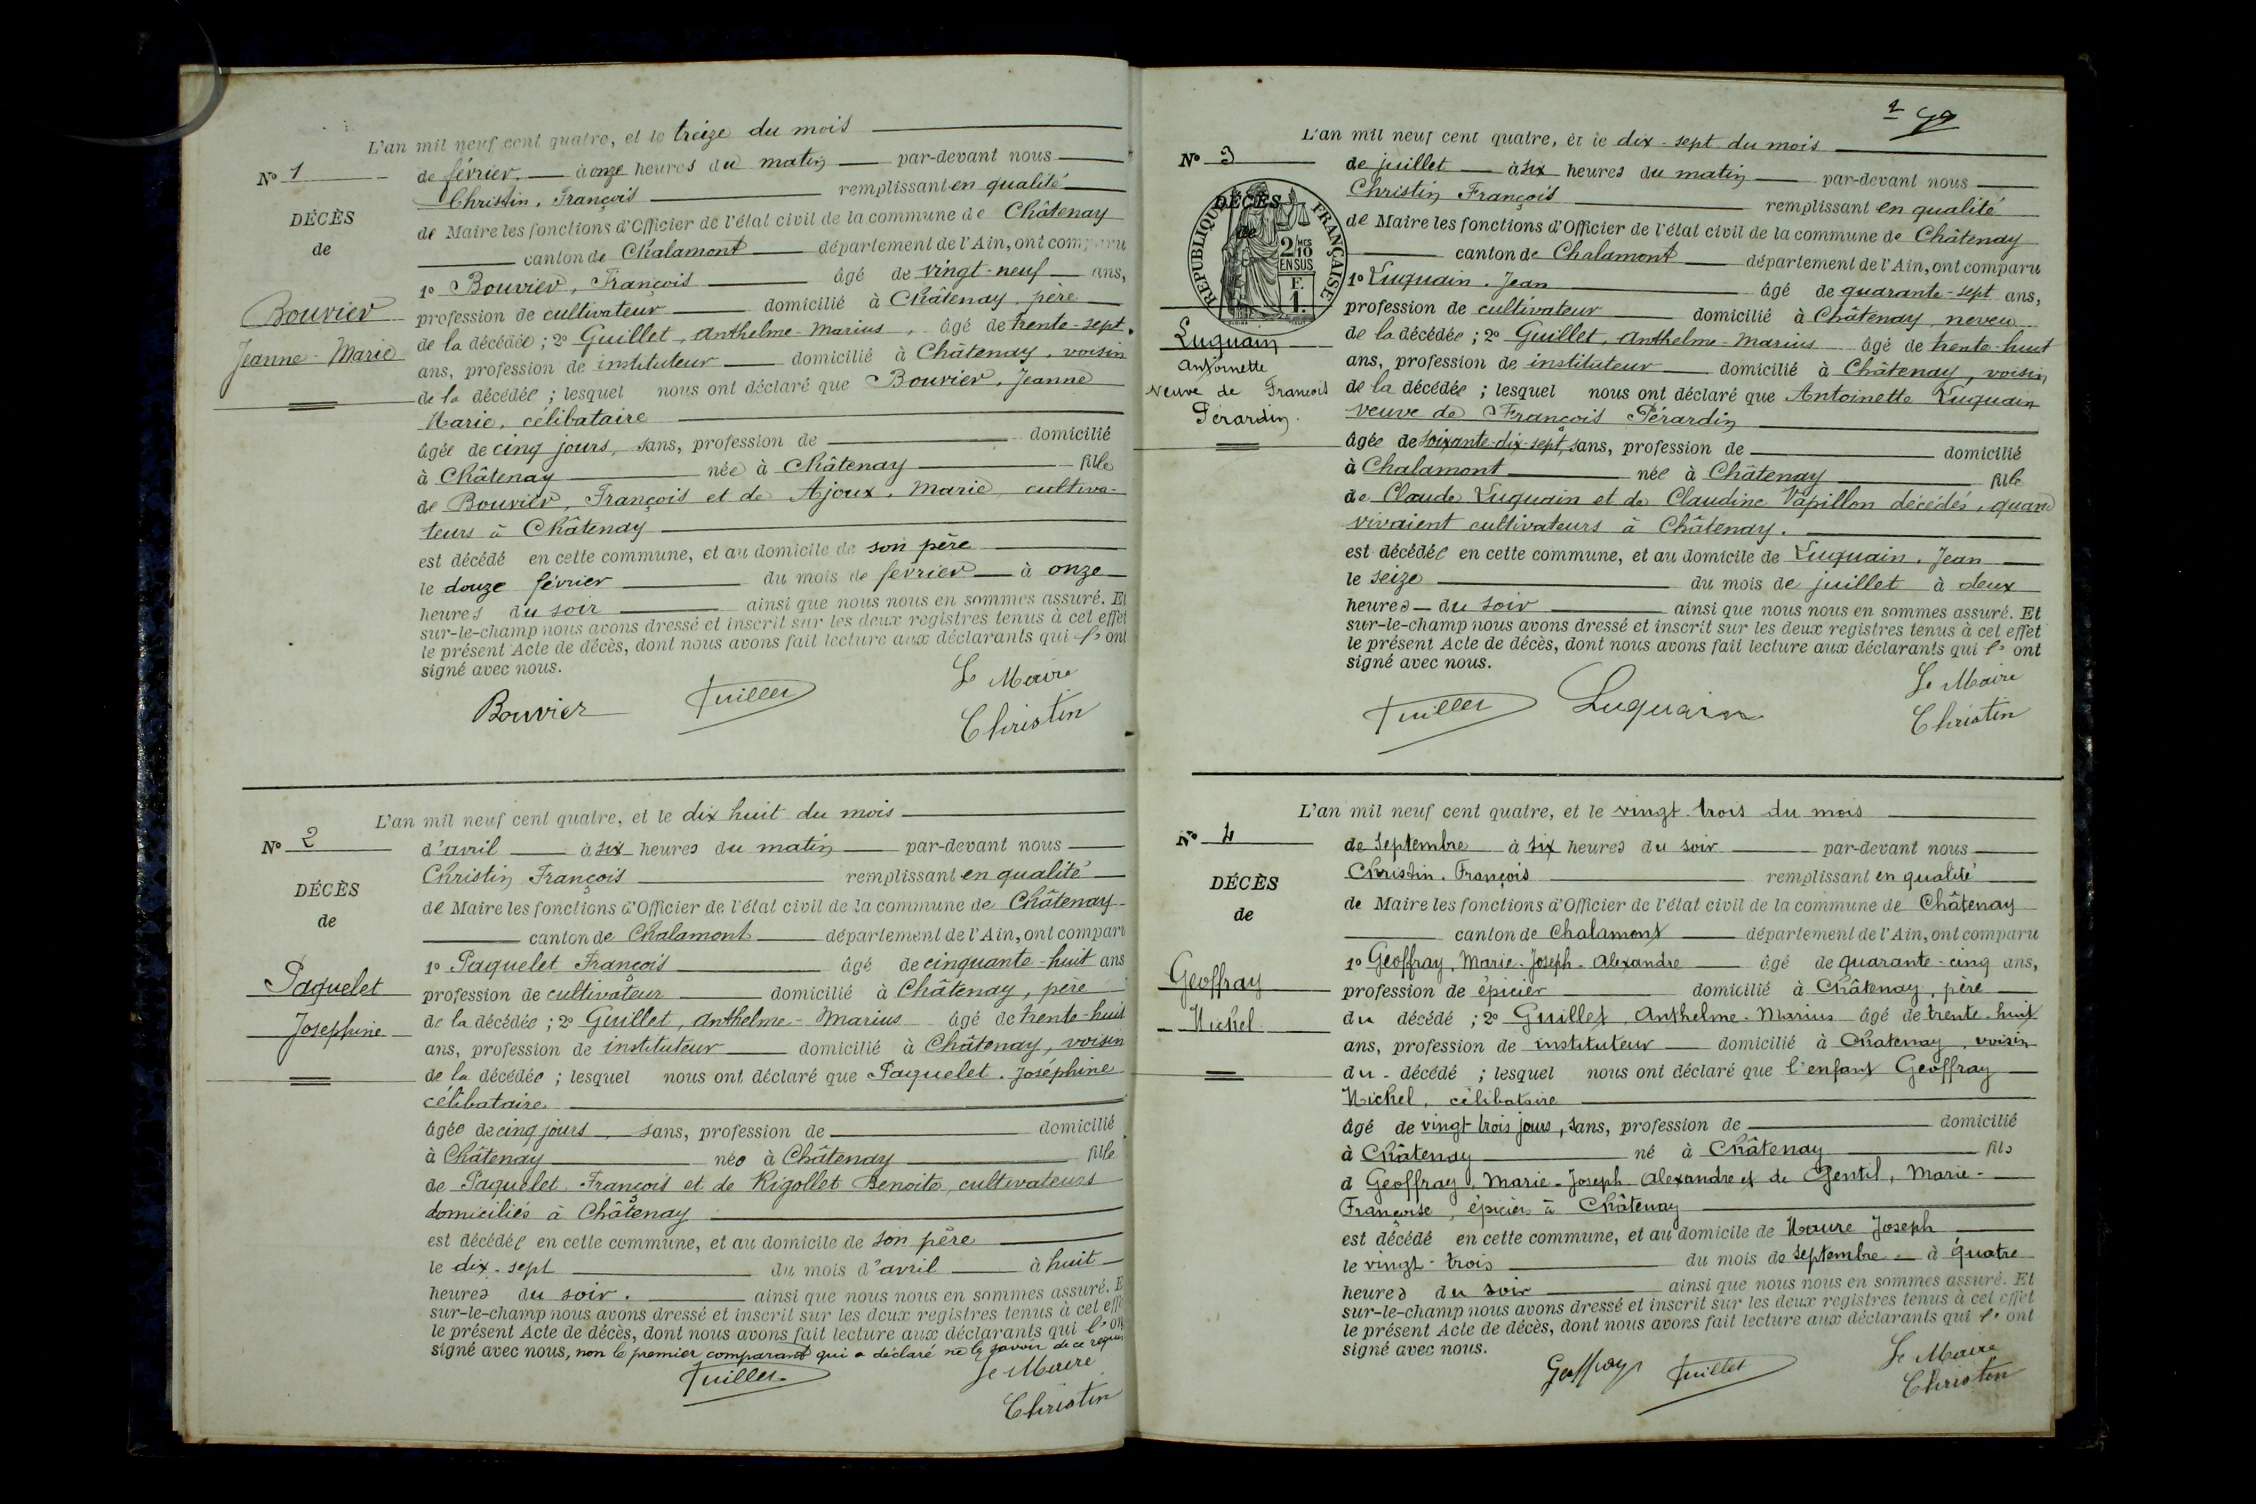 L'an mil neuf cent quatre, et le treize du mois
No 1
de février, à onze heures du matin par-devant nous
Christin, François remplissant en qualité
DÉCÈS
de Maire les fonctions d'Officier de l'état civil de la commune de Châtenay
de
canton de Chalamont département de l'Ain, ont comparu
1o Bouvier, François âgé de vingt-neuf ans,
Bouvier
profession de cultivateur domicilié à Châtenay, père
de la décédée ; 2o Guillet, Anthelme-Marius, âgé de trente-sept
Jeanne-Marie
ans, profession de instituteur domicilié à Châtenay, voisin
de la décédée ; lesquel nous ont déclaré que Bouvier, Jeanne
Marie, célibataire
âgée de cinq jours, sans, profession de domicilié
à Châtenay née à Châtenay fille
de Bouvier, François et de Ajoux, Marie, cultiva-
teurs à Châtenay
est décédé en cette commune, et au domicile de son père
le douze février du mois de février à onze
heures du soir ainsi que nous nous en sommes assuré. Et
sur-le-champ nous avons dressé et inscrit sur les deux registres tenus à cet effet
le présent Acte de décès, dont nous avons fait lecture aux déclarants qui l' ont
signé avec nous.
Le Maire
Bouvier Guillet Christin
L'an mil neuf cent quatre, et le dix huit du mois
No 2
d'avril à six heures du matin par-devant nous
Christin François remplissant en qualité
DÉCÈS
de Maire les fonctions d'Officier de l'état civil de la commune de Châtenay
de
canton de Chalamont département de l'Ain, ont comparu
1o Paquelet François âgé de cinquante-huit ans
Paquelet
profession de cultivateur domicilié à Châtenay, père
Josephine
de la décédée ; 2o Guillet, Anthelme-Marius âgé de trente-huit
ans, profession de instituteur domicilié à Châtenay, voisin
de la décédée ; lesquel nous ont déclaré que Paquelet, Joséphine
célibataire
âgée de cinq jours, sans, profession de domicilié
à Châtenay née à Châtenay fille
de Paquelet François et de Rigollet Benoite, cultivateurs
domiciliés à Châtenay
est décédée en cette commune, et au domicile de son père
le dix-sept du mois d'avril à huit
heures du soir. ainsi que nous nous en sommes assuré. E
sur-le-champ nous avons dressé et inscrit sur les deux registres tenus à cet effe
le présent Acte de décès, dont nous avons fait lecture aux déclarants qui l' on
signé avec nous, non le premier comparant qui a déclaré ne le savoir de ce requis
Guillet Le Maire
Christin
L'an mil neuf cent quatre, et le dix-sept du mois
No 3
de juillet à six heures du matin par-devant nous
Christin François remplissant en qualité
DÉCÈS
de
RÉPUBLIQUE FRANÇAISE.
2/10 MES
EN SUS
F.
1.
de Maire les fonctions d'Officier de l'état civil de la commune de Châtenay
canton de Chalamont département de l'Ain, ont comparu
1o Luquain, Jean âgé de quarante-sept ans,
profession de cultivateur domicilié à Châtenay, neveu
Luquain
de la décédée ; 2o Guillet, Anthelme-Marius âgé de trente-huit
Antoinette
ans, profession de instituteur domicilié à Châtenay, voisin
veuve de François
de la décédée ; lesquel nous ont déclaré que Antoinette Luquain
Pérardin.
veuve de François Pérardin
âgée de soixante-dix-sept, sans, profession de domicilié
à Chalamont née à Châtenay fille
de Claude Luquain et de Claudine Vapillon décédés, quand
vivaient cultivateurs à Châtenay.
est décédée en cette commune, et au domicile de Luquain, Jean
le seize du mois de juillet à deux
heures du soir ainsi que nous nous en sommes assuré. Et
sur-le-champ nous avons dressé et inscrit sur les deux registres tenus à cet effet
le présent Acte de décès, dont nous avons fait lecture aux déclarants qui l' ont
signé avec nous.
Le Maire
Guillet Luquain Christin
L'an mil neuf cent quatre, et le vingt-trois du mois
No 4
de Septembre à six heures du soir par-devant nous
Christin, François remplissant en qualité
DÉCÈS
de Maire les fonctions d'Officier de l'état civil de la commune de Châtenay
de
canton de Chalamont département de l'Ain, ont comparu
1o Geoffray, Marie-Joseph-Alexandre âgé de quarante-cinq ans,
Geoffray
profession de épicier domicilié à Châtenay, père
Michel
du décédé ; 2o Guillet, Anthelme-Marius âgé de trente-huit
ans, profession de instituteur domicilié à Chatenay, voisin
du décédé ; lesquel nous ont déclaré que l'enfant Geoffray
Michel, célibataire
âgé de vingt-trois jours, sans, profession de domicilié
à Châtenay né à Châtenay fils
d Geoffray, Marie-Joseph Alexandre et de Gentil, Marie-
Françoise, épiciers à Châtenay
est décédé en cette commune, et au domicile de Maure Joseph
le vingt-trois du mois de septembre à quatre
heures du soir ainsi que nous nous en sommes assuré. Et
sur-le-champ nous avons dressé et inscrit sur les deux registres tenus à cet effet
le présent Acte de décès, dont nous avons fait lecture aux déclarants qui l' ont
signé avec nous.
Le Maire
Geoffray Guillet Christin